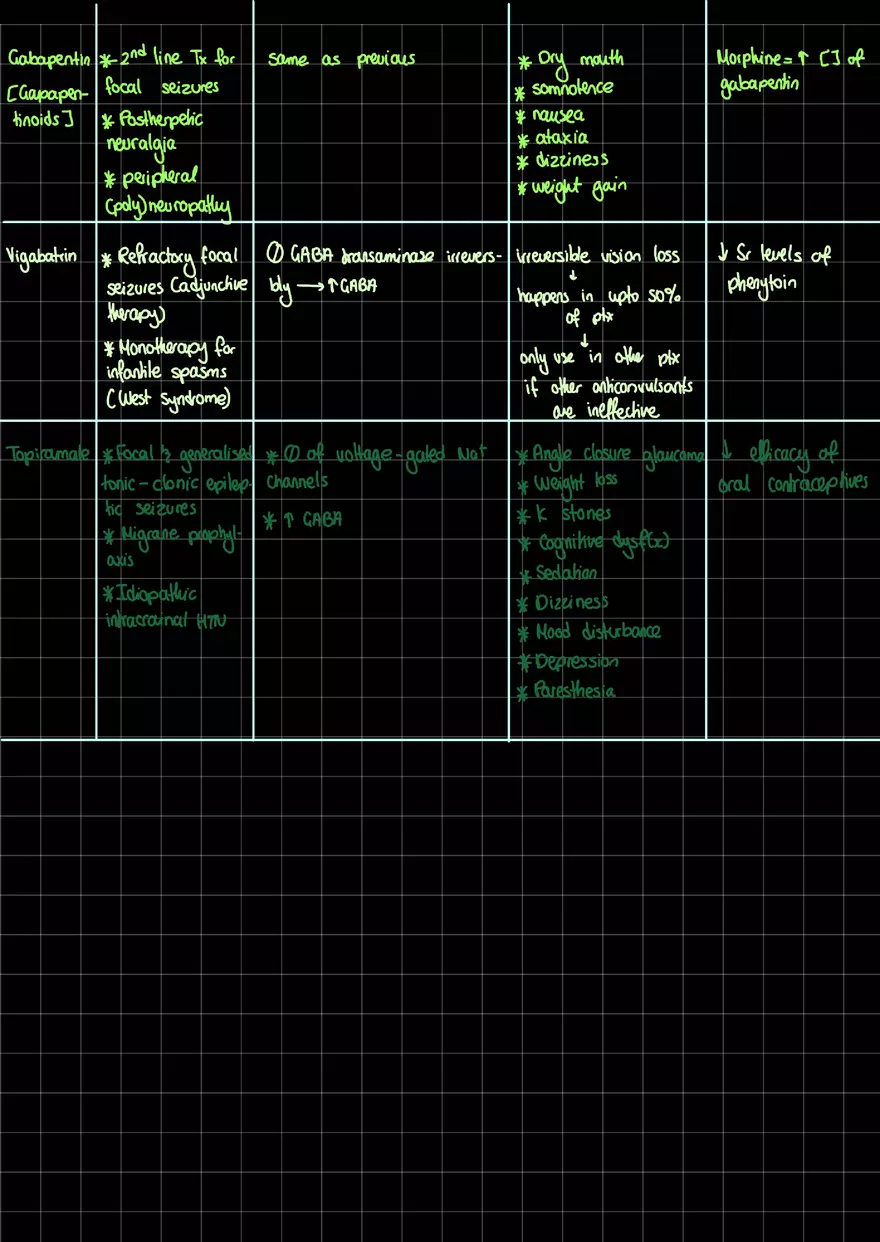 Gabapentin
[Gapapen-
tinoids]
* 2nd line Tx for
focal seizures
* Postherpetic
neuralgia
* peripheral
(poly)neuropathy
same as previous
* Dry mouth
* somnolence
* nausea
* ataxia
* dizziness
* weight gain
Morphine = ↑ [] of
gabapentin
Vigabatrin
* Refractory focal
seizures (adjunctive
therapy)
* Monotherapy for
infantile spasms
(West Syndrome)
⊖ GABA transaminase irrevers-
bly → ↑ GABA
irreversible vision loss
↓
happens in upto 50%
of ptx
↓
only use in other ptx
if other anticonvulsants
are ineffective
↓ Sr levels of
phenytoin
Topiramate
* Focal & generalised
tonic-clonic epilep-
tic seizures
* Migrane prophyl-
axis
* Idiopathic
intracrainal HTN
* ⊖ of voltage-gated Na+
channels
* ↑ GABA
* Angle closure glaucoma
* Weight loss
* K stones
* Cognitive dysf(x)
* Sedation
* Dizziness
* Mood disturbance
* Depression
* Paresthesia
↓ efficacy of
oral contraceptives